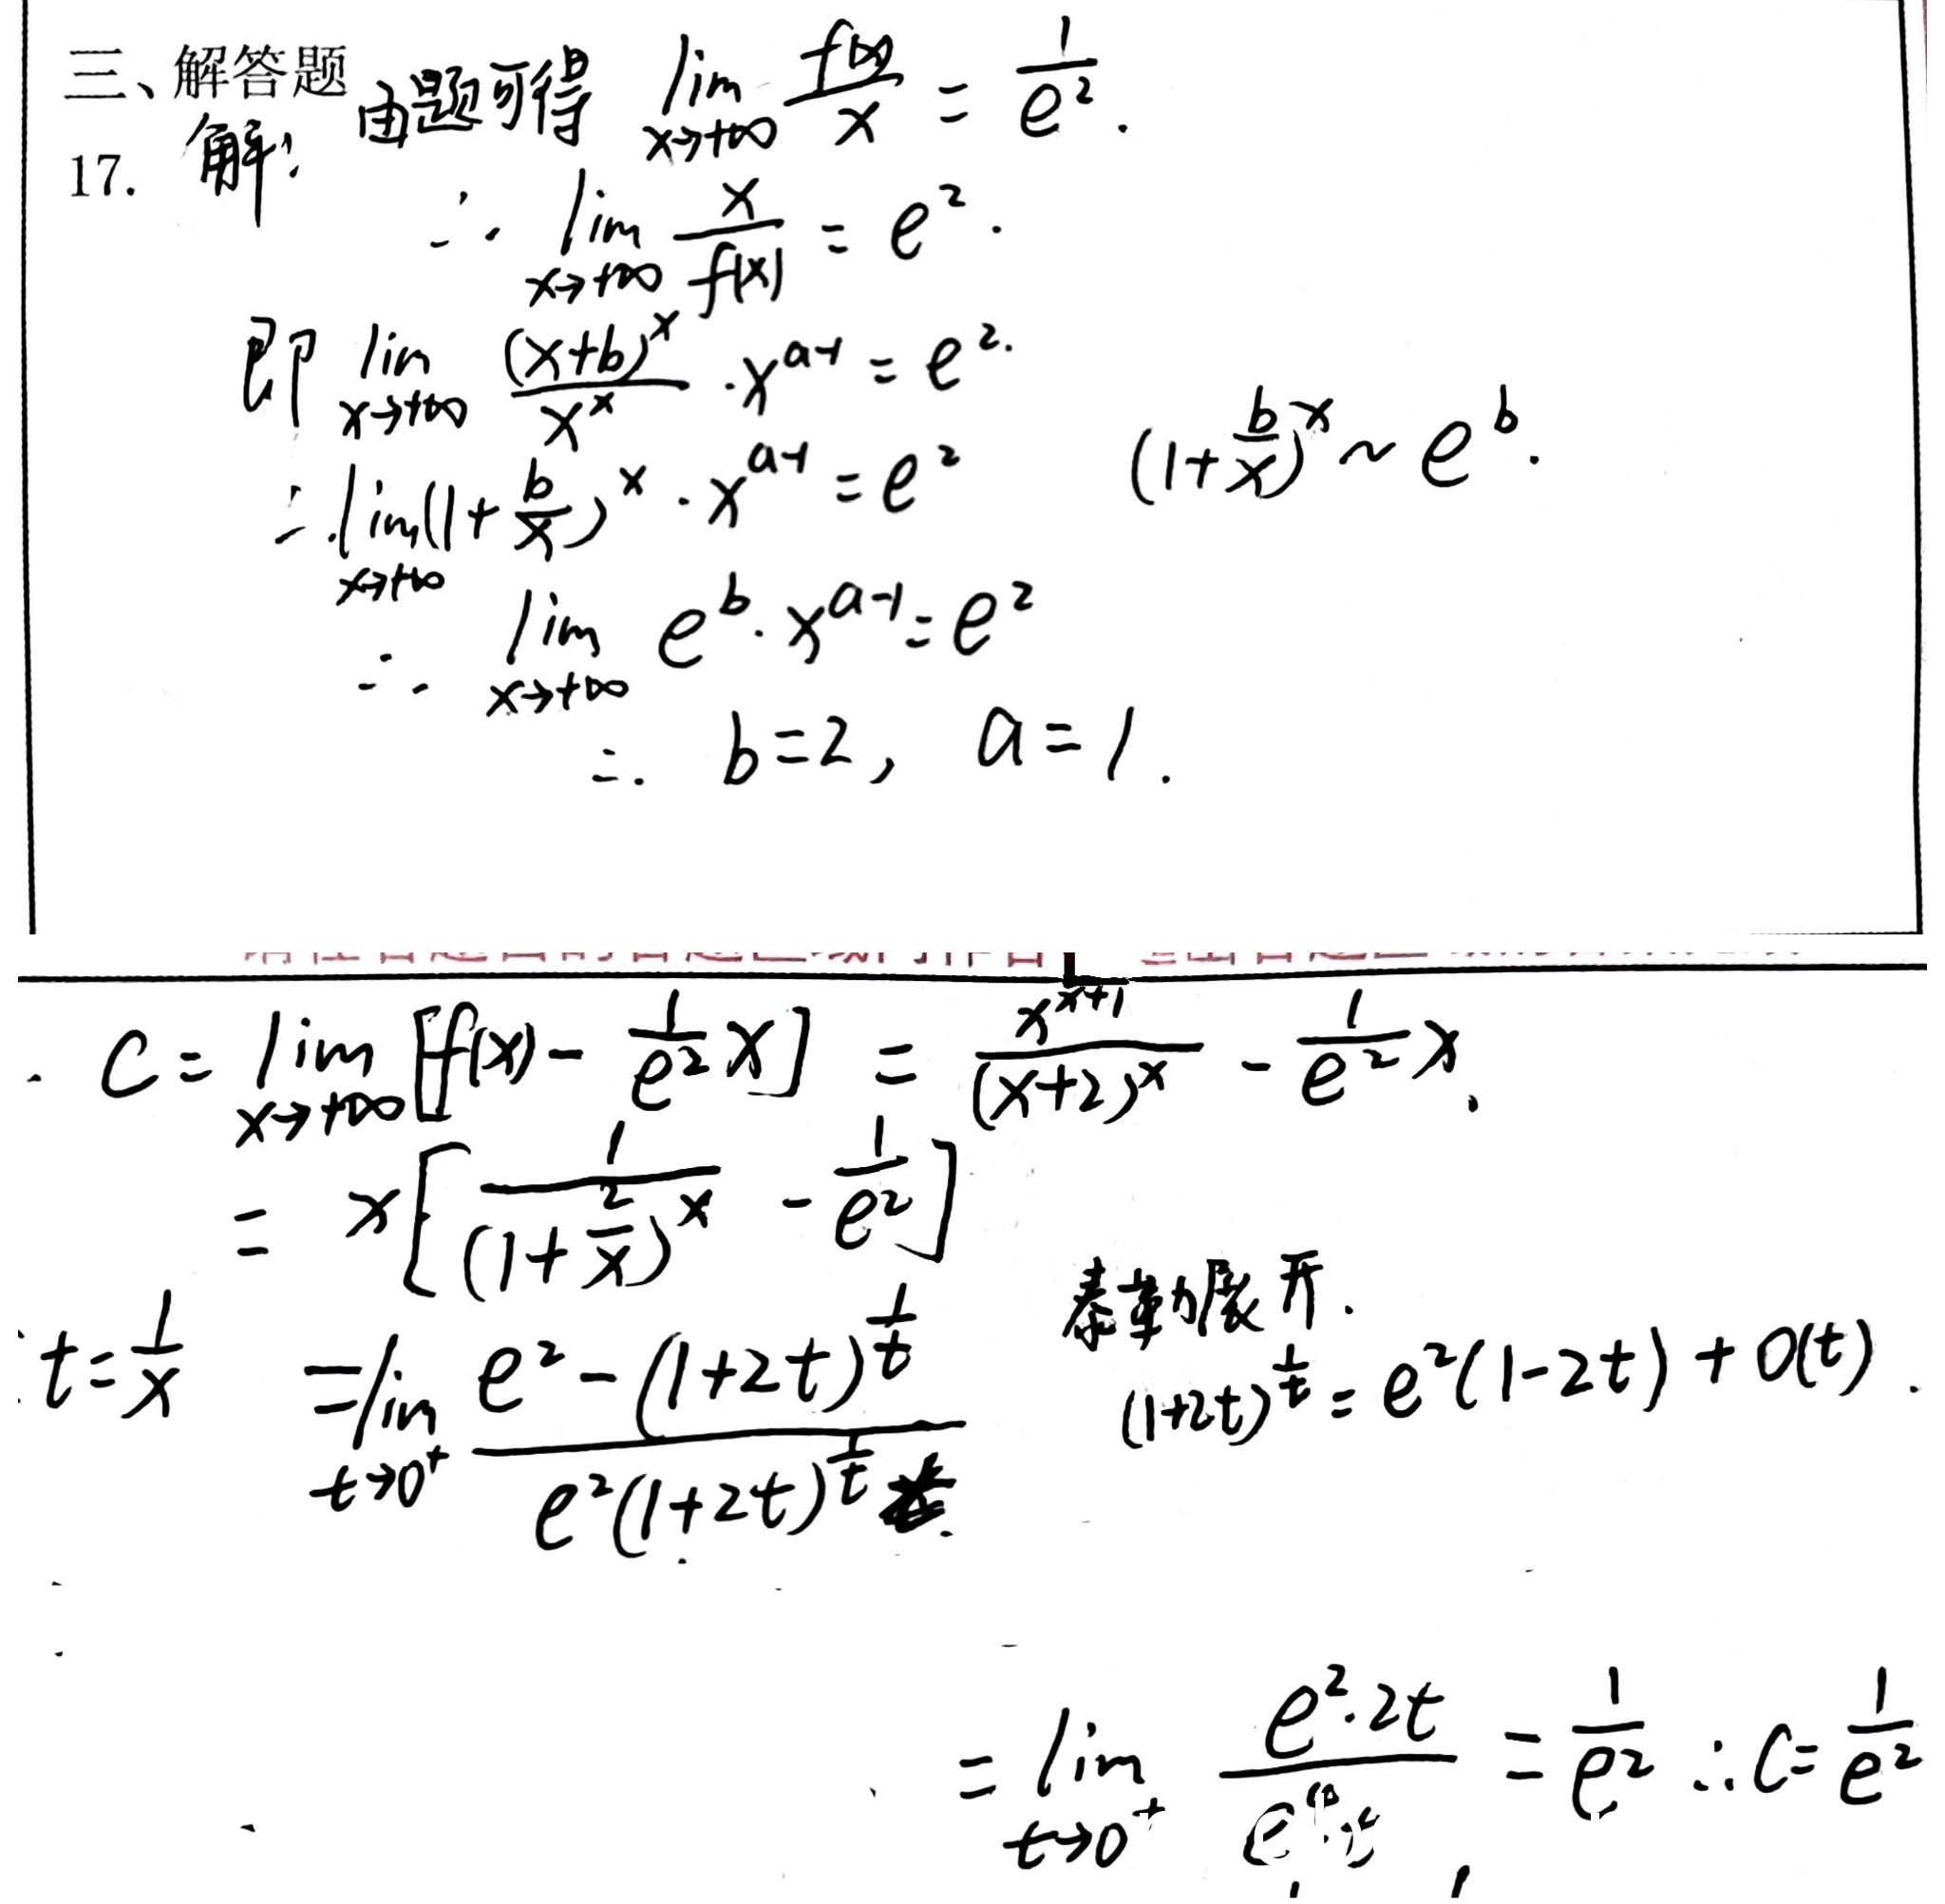 三、解答题
17. 解: 由题可得 lim x→+∞ f(x)/x = 1/e².
∴ lim x→+∞ x/f(x) = e².
即 lim x→+∞ (x+b)^x/x^x · x^(a-1) = e².
∴ lim x→+∞ (1+b/x)^x · x^(a-1) = e² (1+b/x)^x ~ e^b.
∴ lim x→+∞ e^b · x^(a-1) = e²
∴ b=2, a=1.
C = lim x→+∞ [f(x) - 1/e² x] = x^(x+1)/(x+2)^x - 1/e² x.
= x[1/(1+2/x)^x - 1/e²]
泰勒展开.
t=1/x = lim t→0⁺ (e²-(1+2t)^(1/t))/(e²(1+2t)^(1/t)) (1+2t)^(1/t) = e²(1-2t)+O(t).
= lim t→0⁺ e²·2t / = 1/e² ∴ C = 1/e²